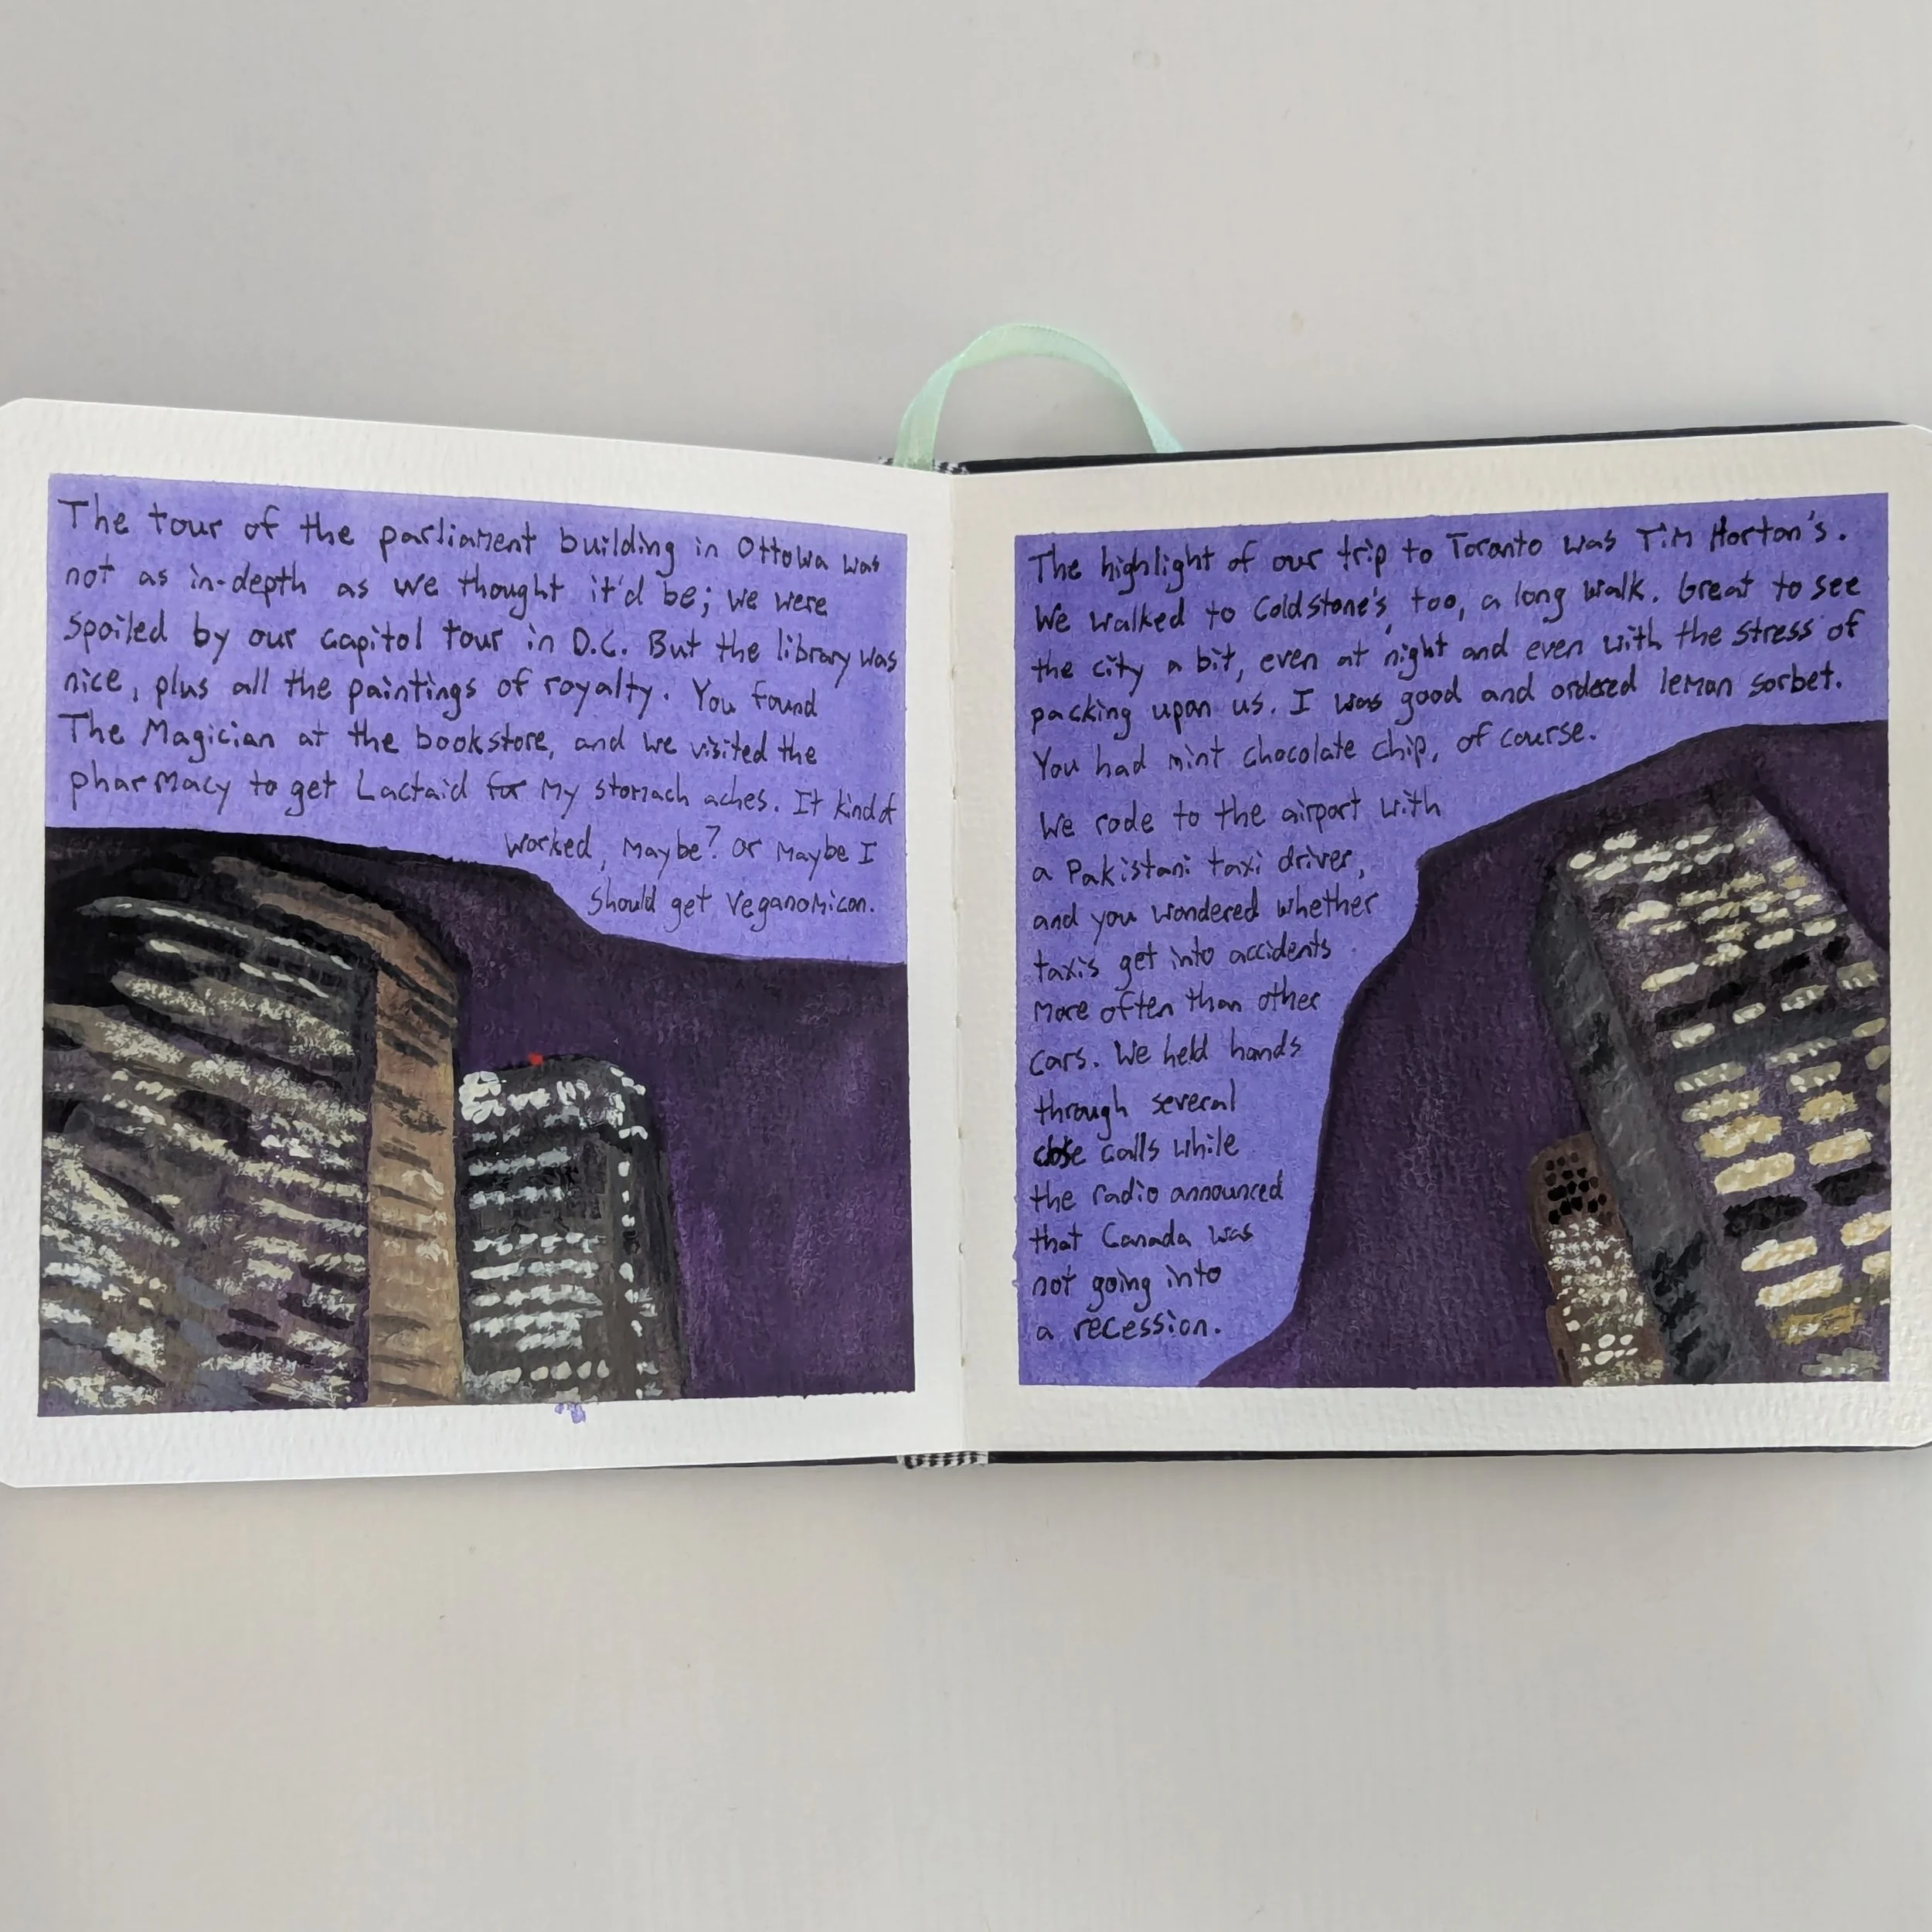 The tour of the parliament building in Ottowa was
not as in-depth as we thought it'd be; we were
spoiled by our capitol tour in D.C. But the library was
nice, plus all the paintings of royalty. You found
The Magician at the bookstore, and we visited the
pharmacy to get Lactaid for my stomach aches. It kind of
worked, maybe? or maybe I
should get Veganomicon.
The highlight of our trip to Toronto was Tim Horton's.
We walked to Coldstone's, too, a long walk. Great to see
the city a bit, even at night and even with the stress of
packing upon us. I was good and ordered lemon sorbet.
You had mint chocolate chip, of course.
We rode to the airport with
a Pakistani taxi driver,
and you wondered whether
taxis get into accidents
more often than other
cars. We held hands
through several
close calls while
the radio announced
that Canada was
not going into
a recession.